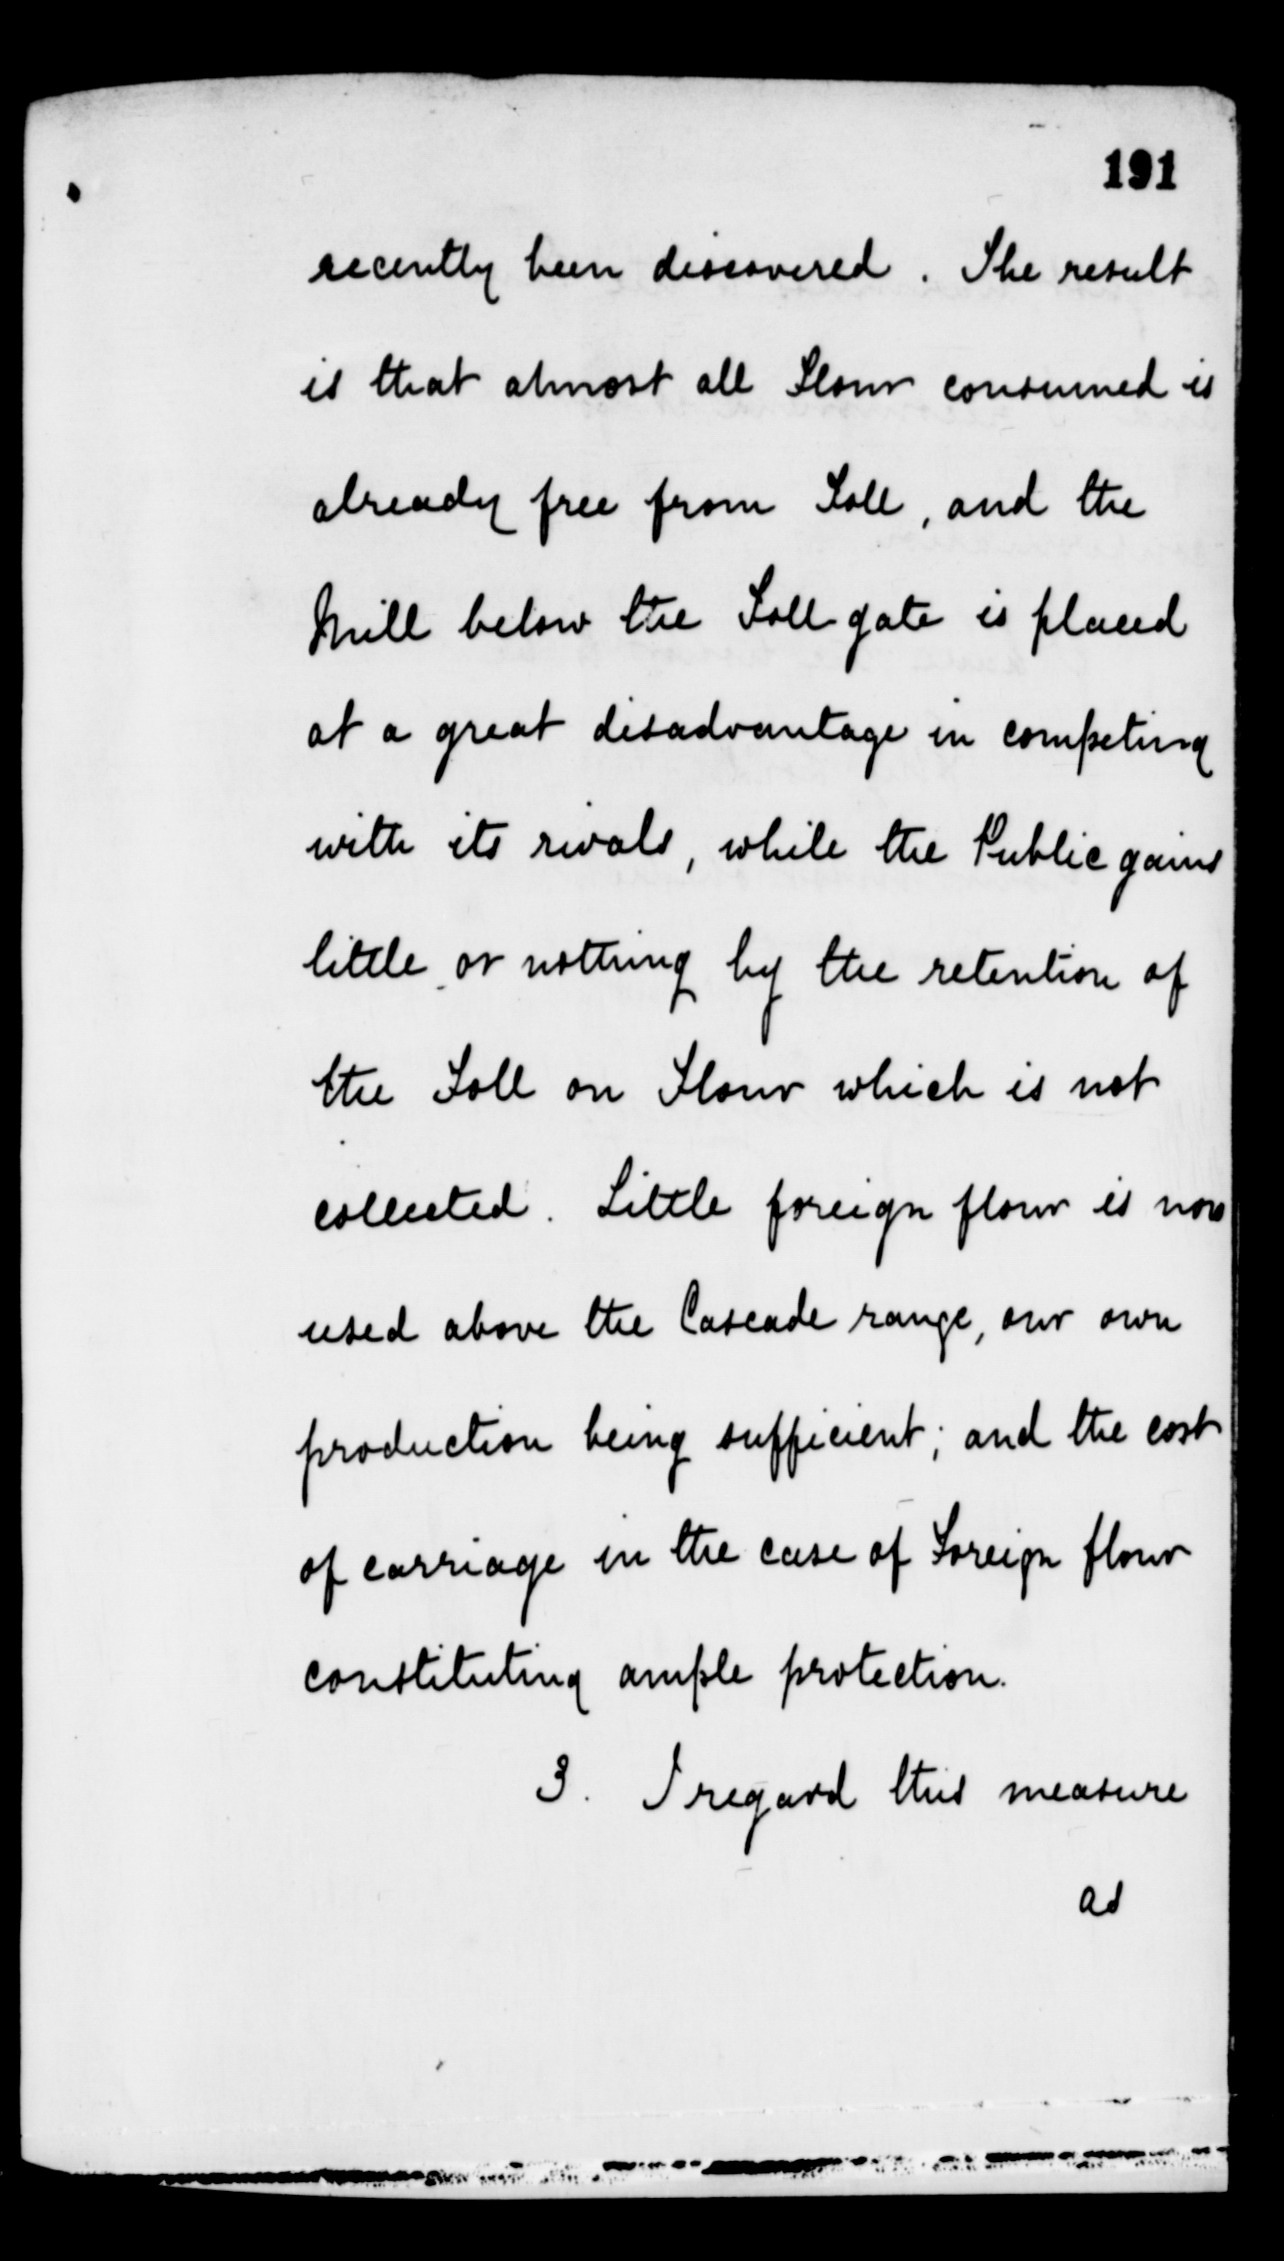 191
recently been discovered. The result
is that almost all Flour consumed is
already free from Toll, and the
Mill below the Toll gate is placed
at a great disadvantage in competing
with its rivals, while the Public gains
little or nothing by the retention of
the Toll on Flour which is not
collected. Little foreign flour is now
used above the Cascade range, our own
production being sufficient; and the cost
of carriage in the case of Foreign flour
constituting ample protection.
3. I regard this measure
as